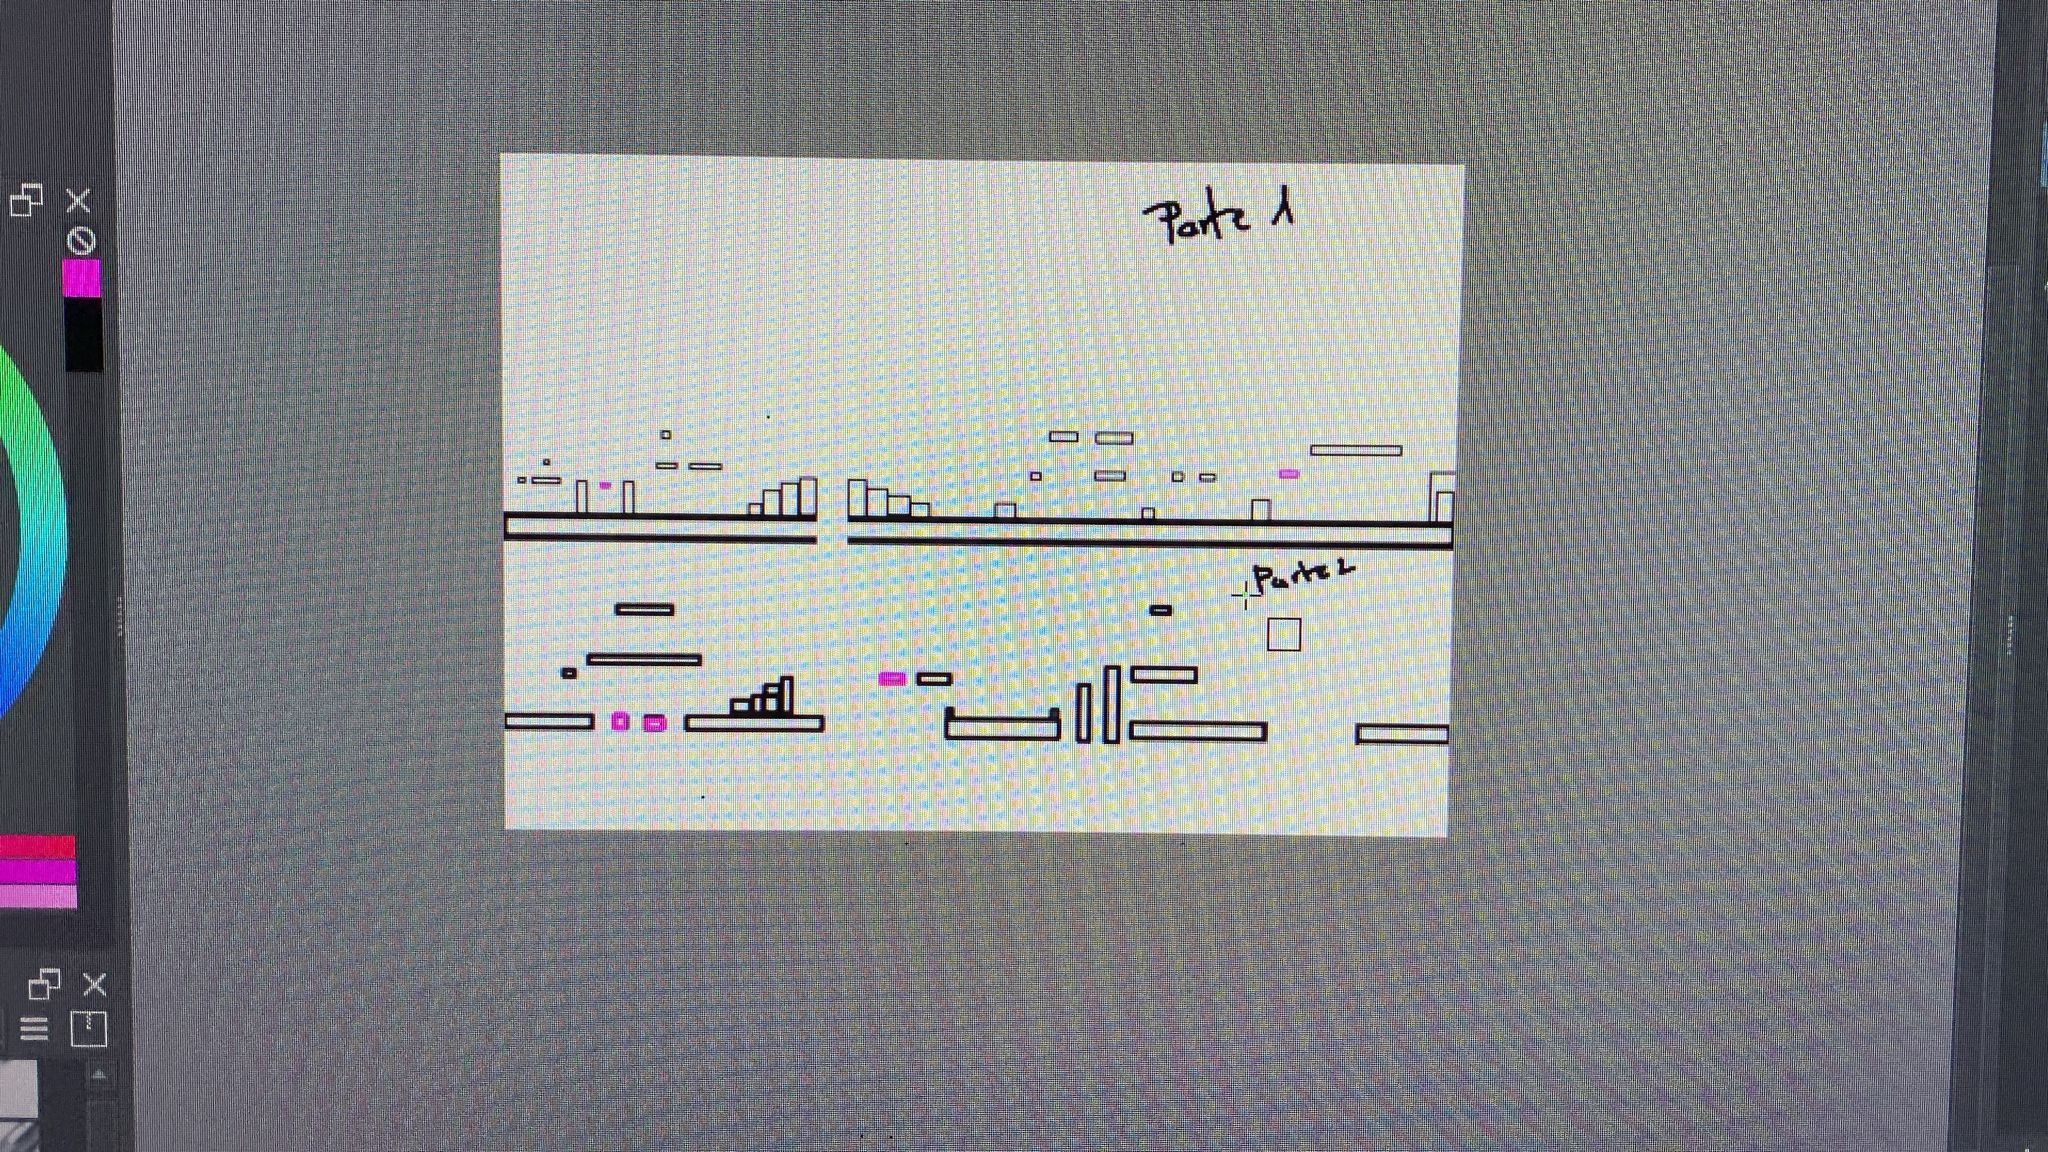 Parte 1
Parte 2